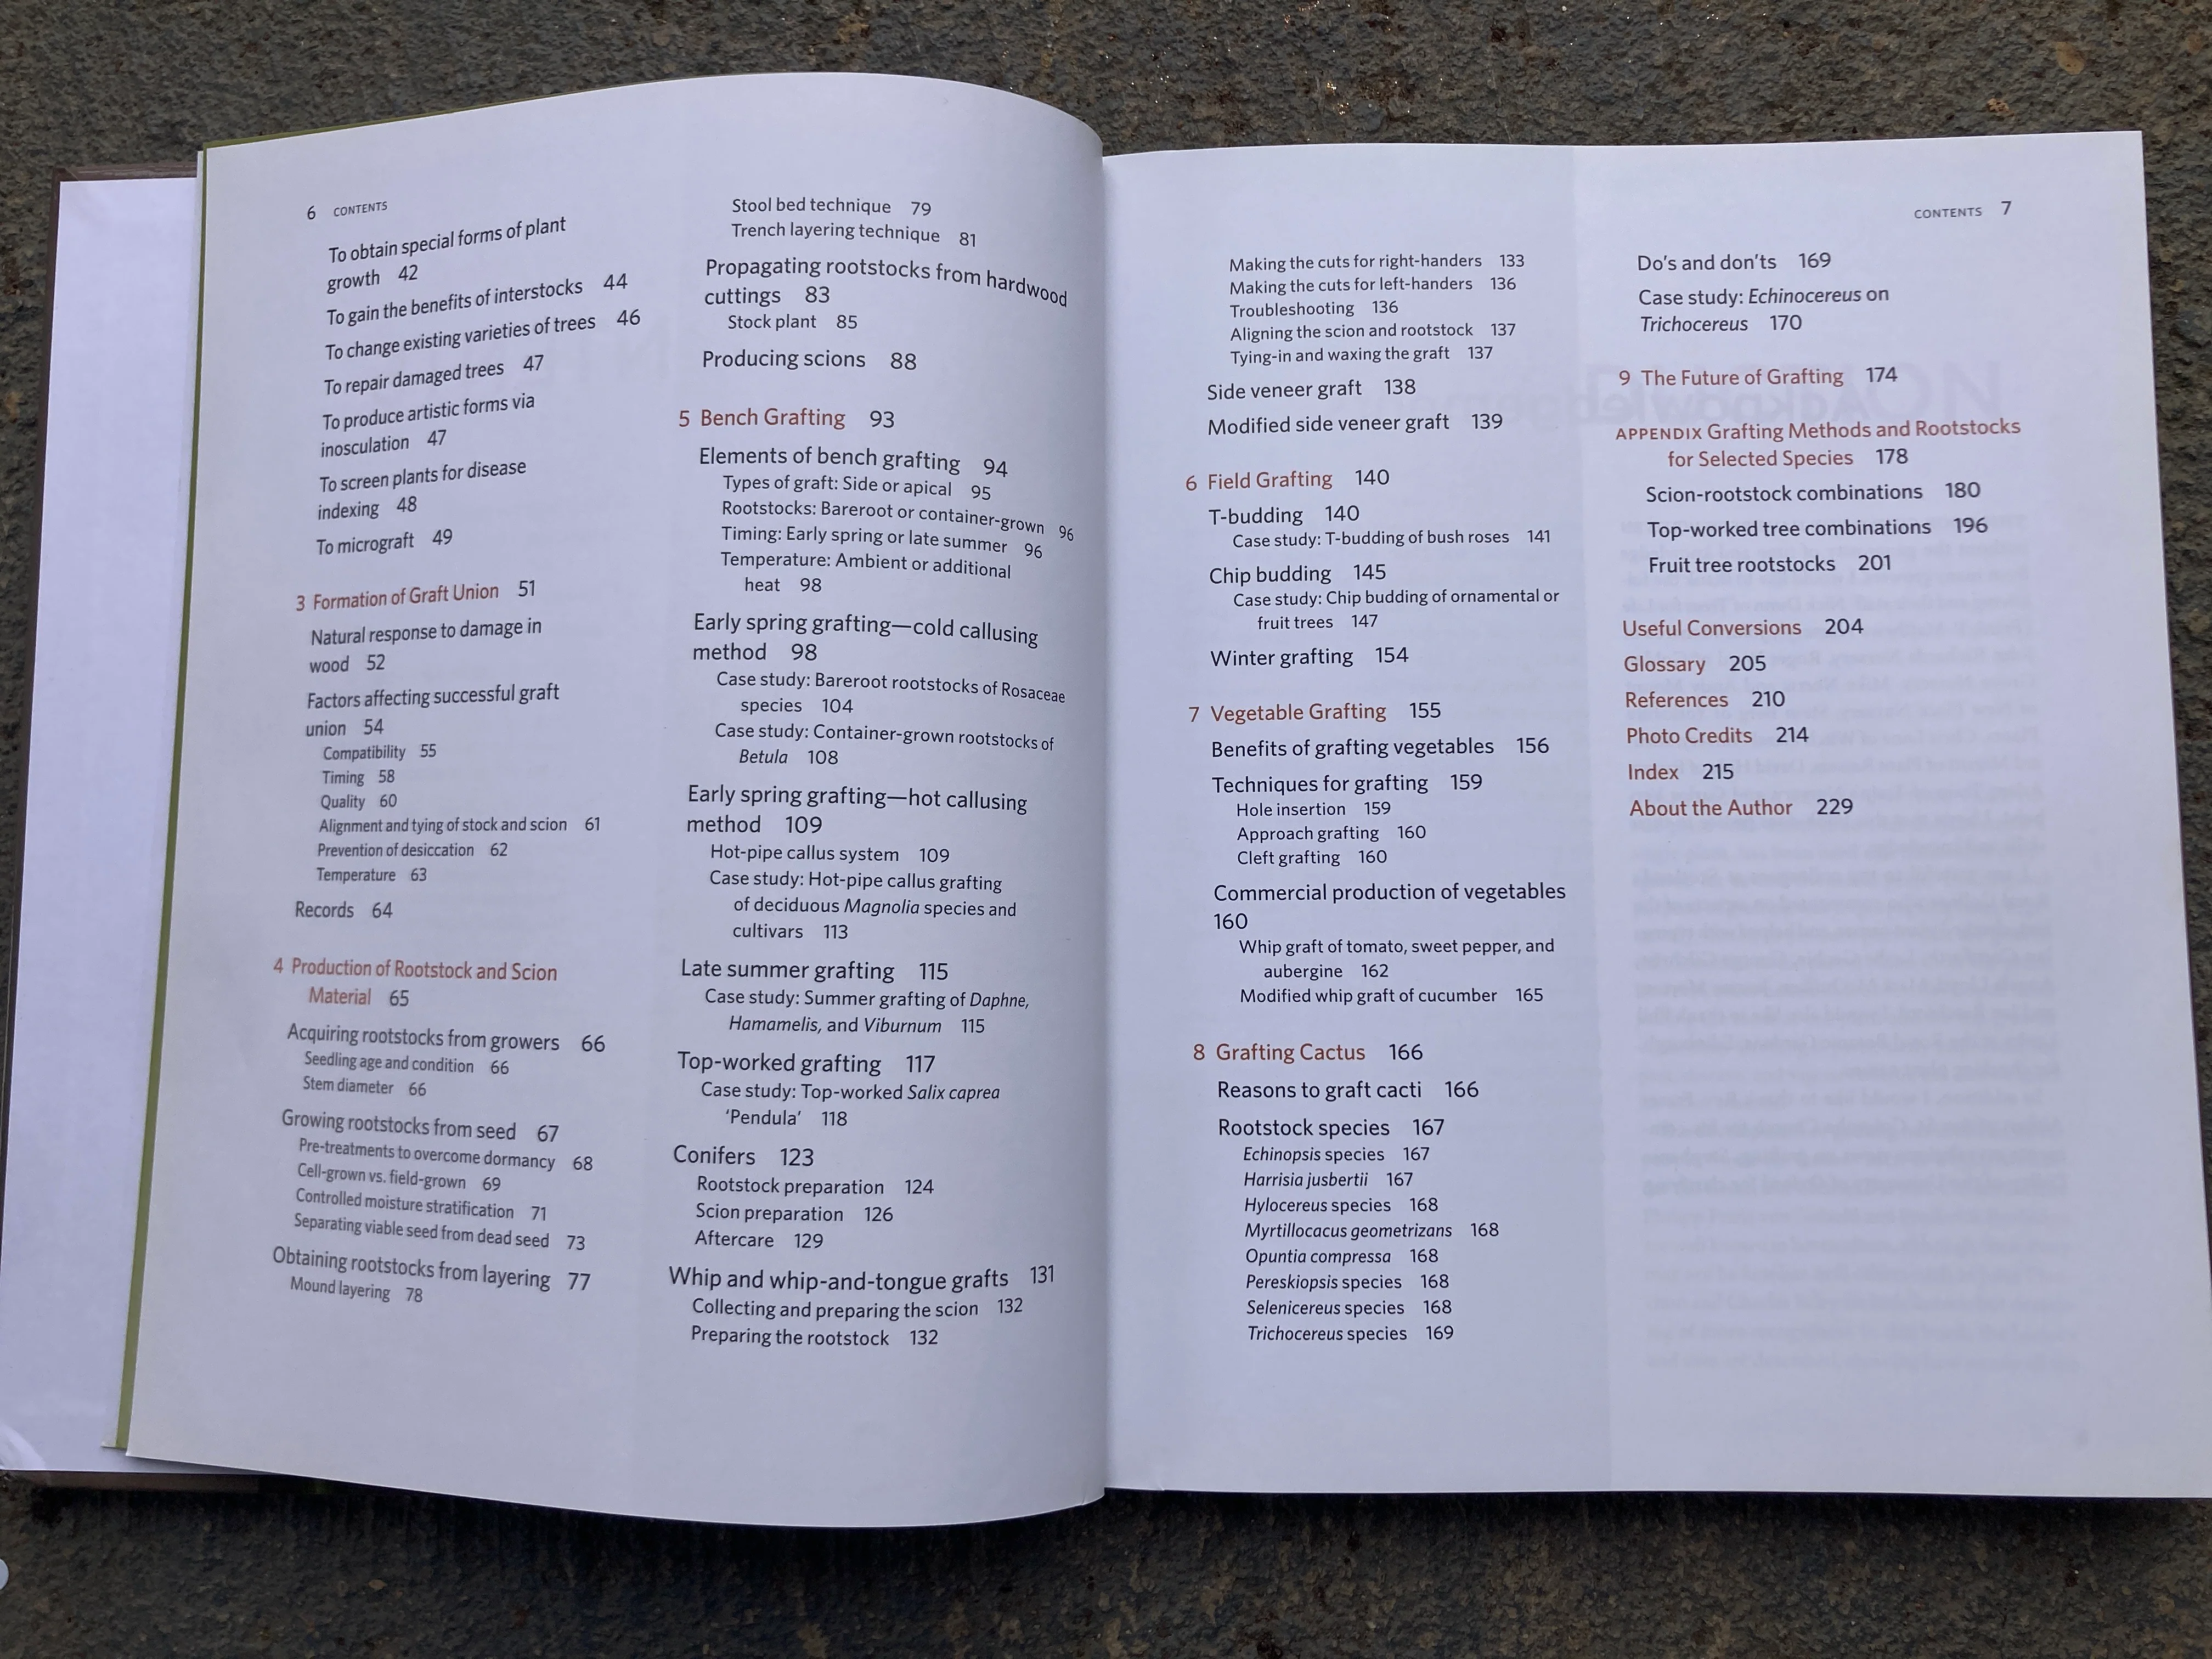 6 CONTENTS
To obtain special forms of plant
growth 42
To gain the benefits of interstocks 44
To change existing varieties of trees 46
To repair damaged trees 47
To produce artistic forms via
inosculation 47
To screen plants for disease
indexing 48
To micrograft 49
3 Formation of Graft Union 51
Natural response to damage in
wood 52
Factors affecting successful graft
union 54
Compatibility 55
Timing 58
Quality 60
Alignment and tying of stock and scion 61
Prevention of desiccation 62
Temperature 63
Records 64
4 Production of Rootstock and Scion
Material 65
Acquiring rootstocks from growers 66
Seedling age and condition 66
Stem diameter 66
Growing rootstocks from seed 67
Pre-treatments to overcome dormancy 68
Cell-grown vs. field-grown 69
Controlled moisture stratification 71
Separating viable seed from dead seed 73
Obtaining rootstocks from layering 77
Mound layering 78
Stool bed technique 79
Trench layering technique 81
Propagating rootstocks from hardwood
cuttings 83
Stock plant 85
Producing scions 88
5 Bench Grafting 93
Elements of bench grafting 94
Types of graft: Side or apical 95
Rootstocks: Bareroot or container-grown 96
Timing: Early spring or late summer 96
Temperature: Ambient or additional
heat 98
Early spring grafting—cold callusing
method 98
Case study: Bareroot rootstocks of Rosaceae
species 104
Case study: Container-grown rootstocks of
Betula 108
Early spring grafting—hot callusing
method 109
Hot-pipe callus system 109
Case study: Hot-pipe callus grafting
of deciduous Magnolia species and
cultivars 113
Late summer grafting 115
Case study: Summer grafting of Daphne,
Hamamelis, and Viburnum 115
Top-worked grafting 117
Case study: Top-worked Salix caprea
‘Pendula’ 118
Conifers 123
Rootstock preparation 124
Scion preparation 126
Aftercare 129
Whip and whip-and-tongue grafts 131
Collecting and preparing the scion 132
Preparing the rootstock 132
CONTENTS 7
Making the cuts for right-handers 133
Making the cuts for left-handers 136
Troubleshooting 136
Aligning the scion and rootstock 137
Tying-in and waxing the graft 137
Side veneer graft 138
Modified side veneer graft 139
6 Field Grafting 140
T-budding 140
Case study: T-budding of bush roses 141
Chip budding 145
Case study: Chip budding of ornamental or
fruit trees 147
Winter grafting 154
7 Vegetable Grafting 155
Benefits of grafting vegetables 156
Techniques for grafting 159
Hole insertion 159
Approach grafting 160
Cleft grafting 160
Commercial production of vegetables
160
Whip graft of tomato, sweet pepper, and
aubergine 162
Modified whip graft of cucumber 165
8 Grafting Cactus 166
Reasons to graft cacti 166
Rootstock species 167
Echinopsis species 167
Harrisia jusbertii 167
Hylocereus species 168
Myrtillocacus geometrizans 168
Opuntia compressa 168
Pereskiopsis species 168
Selenicereus species 168
Trichocereus species 169
Do’s and don’ts 169
Case study: Echinocereus on
Trichocereus 170
9 The Future of Grafting 174
APPENDIX Grafting Methods and Rootstocks
for Selected Species 178
Scion-rootstock combinations 180
Top-worked tree combinations 196
Fruit tree rootstocks 201
Useful Conversions 204
Glossary 205
References 210
Photo Credits 214
Index 215
About the Author 229